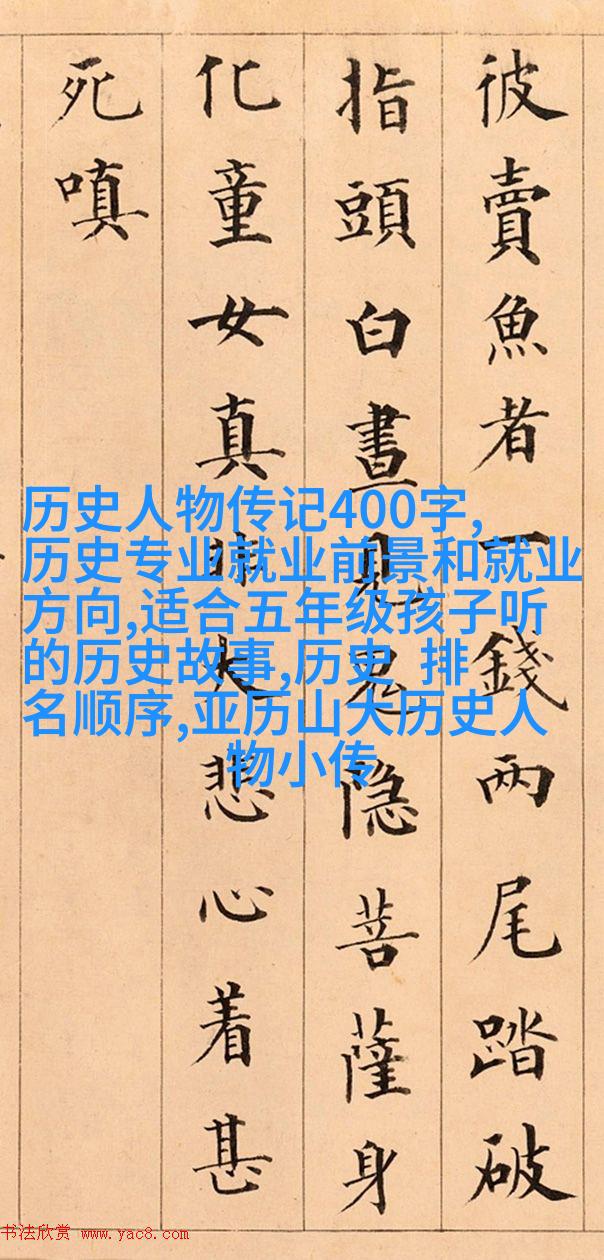 彼賣魚者一錢兩尾踏破
指頭白晝見鬼隐菩薩身
化童女真大悲心着甚
死嗔
历史人物传记400字,
历史专业就业前景和就业
方向,适合五年级孩子听
的历史故事,历史 排
名顺序,亚历山大历史人
物小传
书法欣赏 www.yac8.com